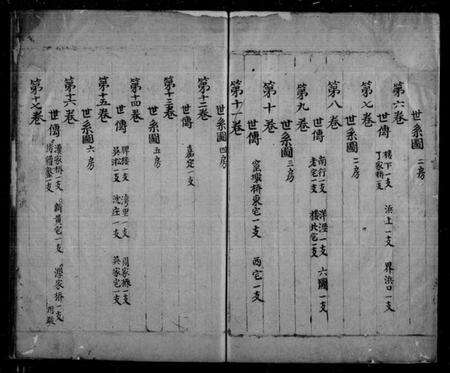 世系圖 二房
第六卷
世傳 樓下一支 浜上一支 界浜口一支
丁家橋一支
第七卷
世系圖 二房
第八卷
世傳 南行一支 洋涇一支 六圖一支
老宅一支 樓北宅一支
第九卷
世系圖 三房
第十卷
世傳 窰壩橋東宅一支 西宅一支
第十一卷
世系圖 四房
第十二卷
世傳 嘉定一支
第十三卷
世系圖 五房
第十四卷
世傳 一支 漕里一支 周家橋一支
吳淞一支 沈庄一支 吳家宅一支
第十五卷
世系圖 六房
第十六卷
世傳 潘家橋一支 新黃宅一支 源家橋一支
一支
第十七卷